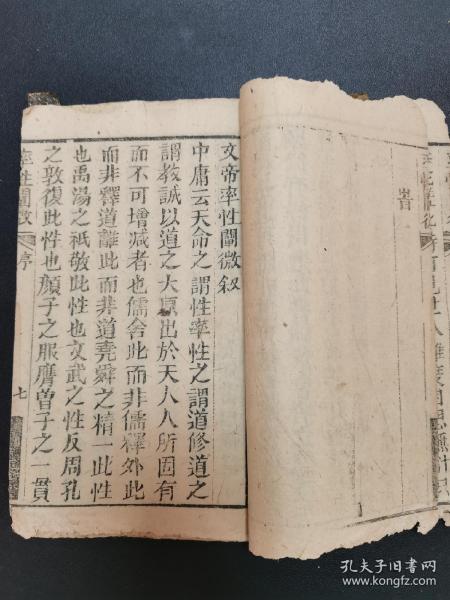 文帝率性闡微叙
中庸云天命之謂性率性之謂道修道之
謂教誠以道之大原出於天人人所固有
而不可增减者也儒舍此而非儒釋外此
而非釋道離此而非道堯舜之精一此性
也禹湯之祗敬此性也文武之性反周孔
之敦復此性也顔子之服膺曾子之一貫
率性闡微 序 七
孔夫子旧书网
www.kongfz.com